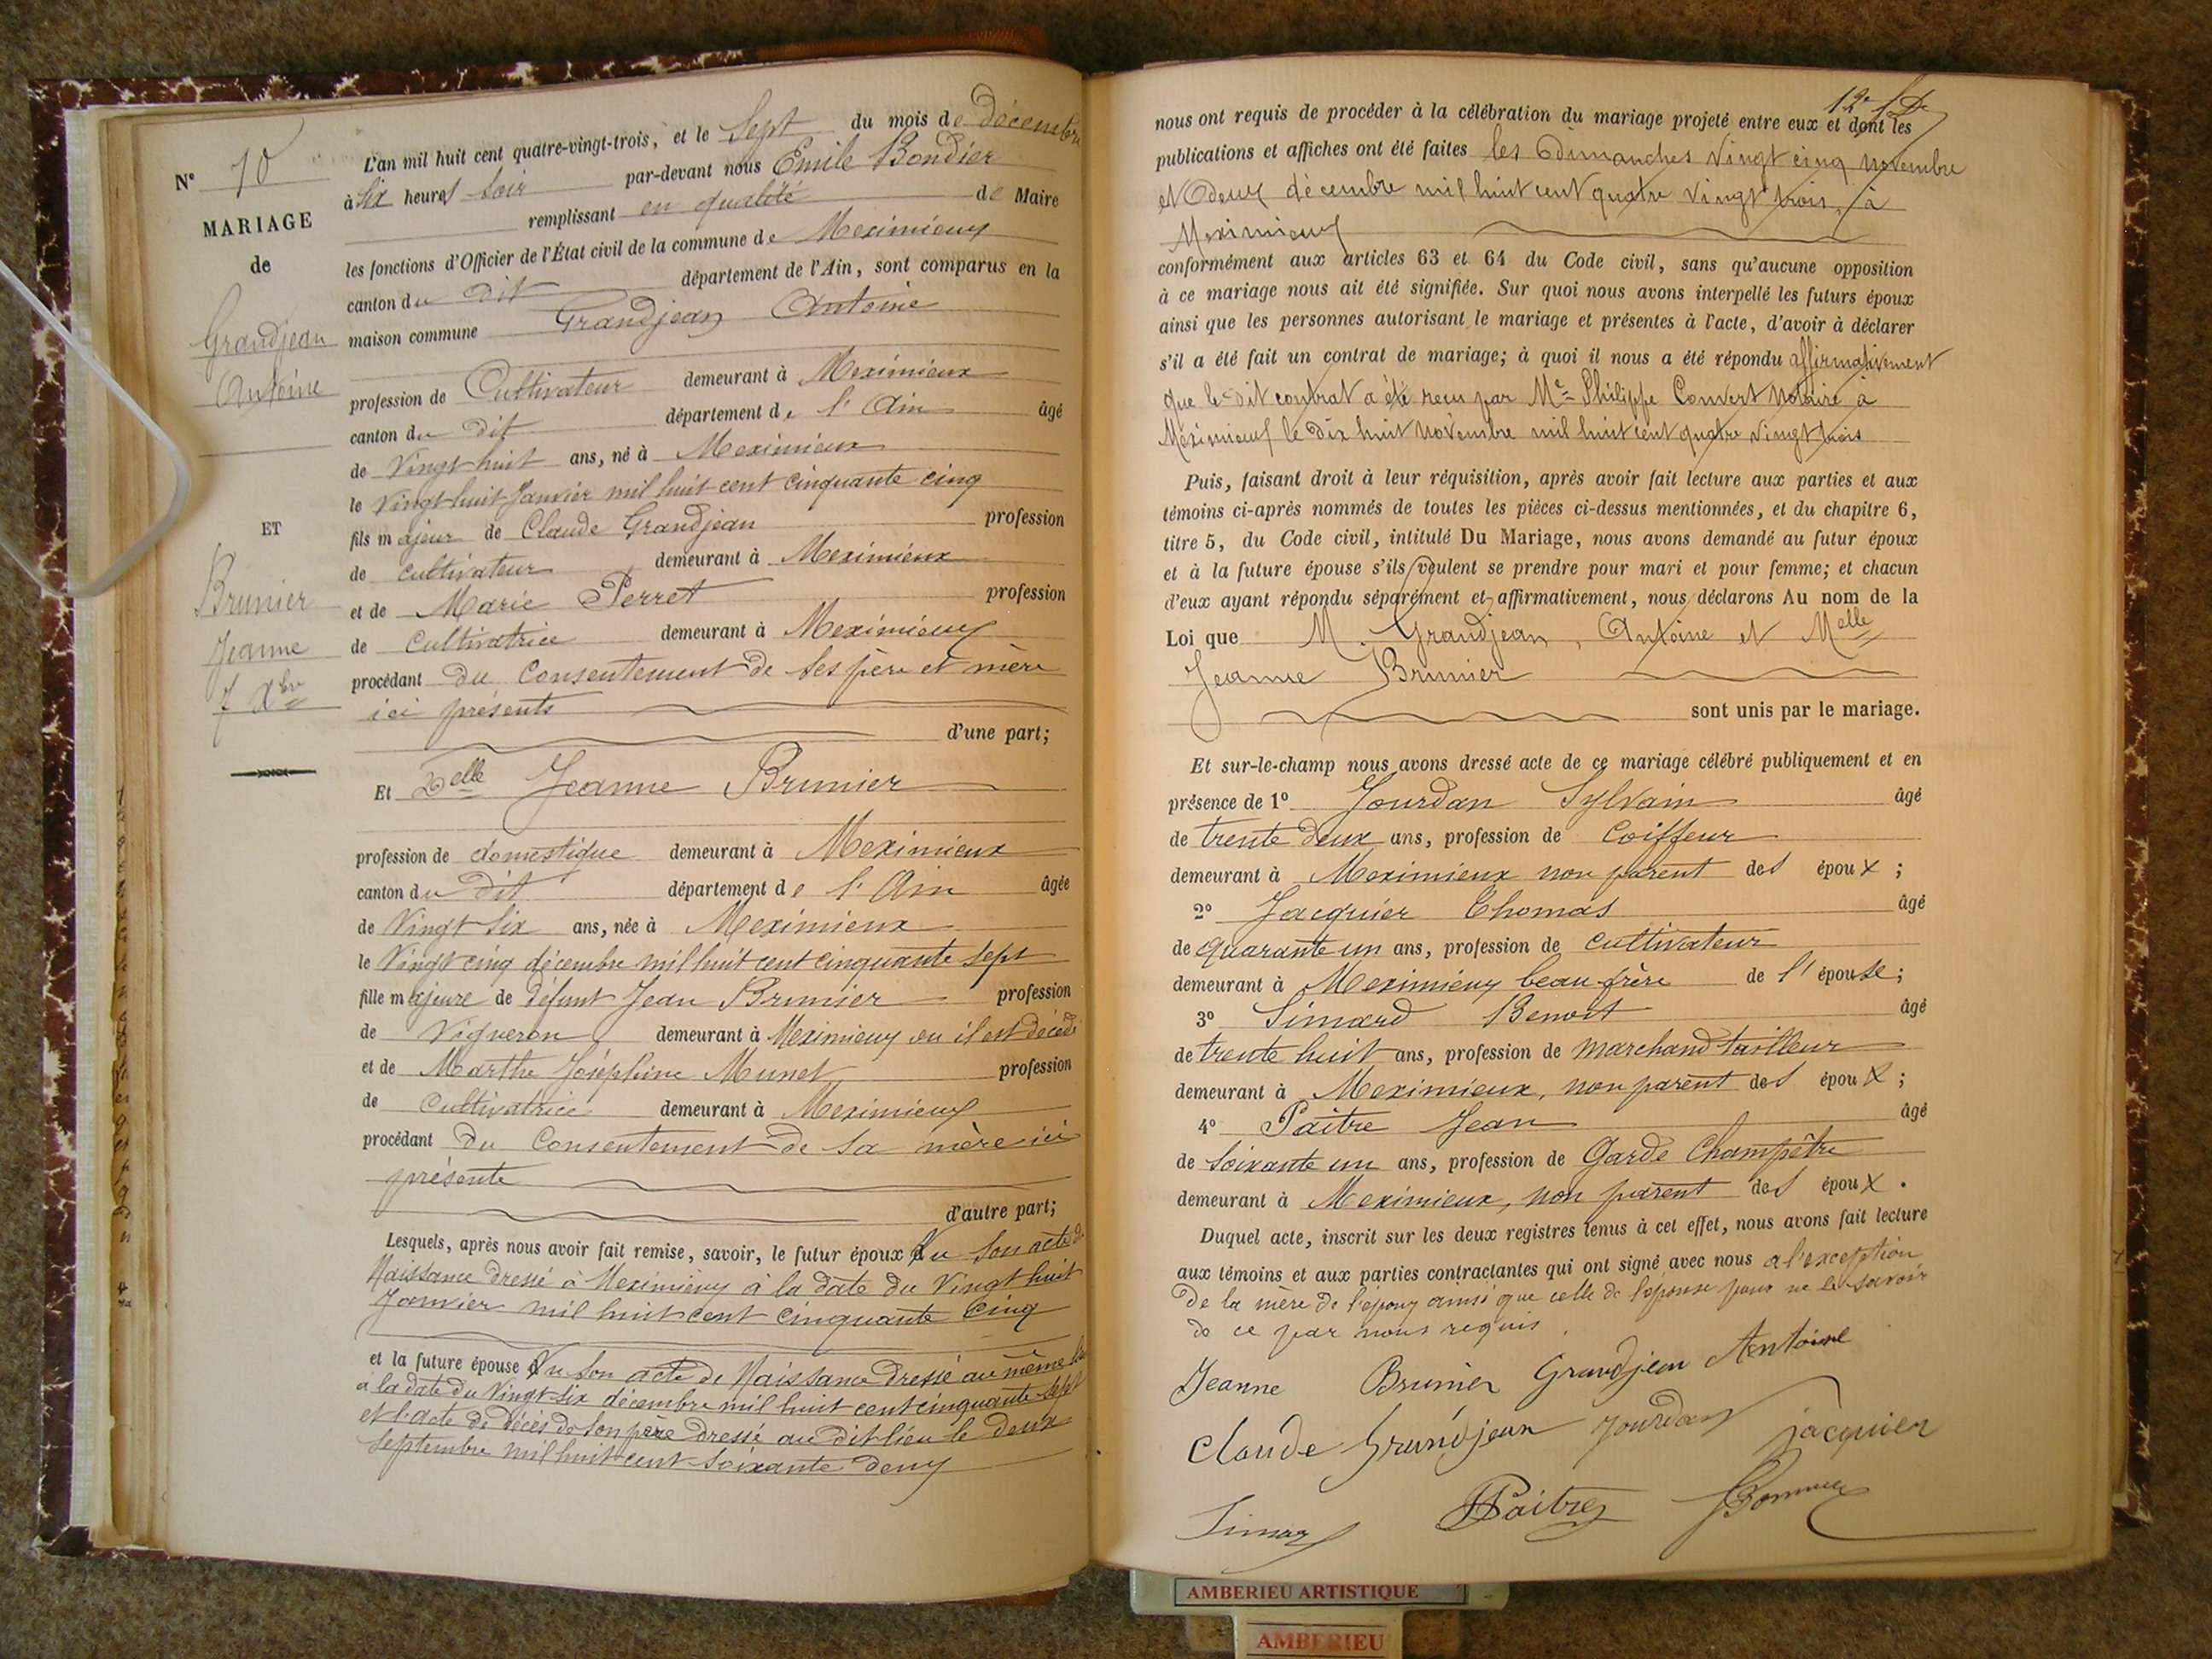 Nº 70
MARIAGE
de
Grandjean
Antoine
ET
Brunier
Jeanne
7 Xbre
L'an mil huit cent quatre-vingt-trois, et le Sept du mois de décembre
à Six heures soir par-devant nous Emile Bondier
remplissant en qualité de Maire
les fonctions d'Officier de l'État civil de la commune de Meximieux
canton du dit département de l'Ain, sont comparus en la
maison commune Grandjean Antoine
profession de Cultivateur demeurant à Meximieux
canton du dit département de l'Ain âgé
de Vingt huit ans, né à Meximieux
le Vingt huit Janvier mil huit cent cinquante cinq
fils majeur de Claude Grandjean profession
de cultivateur demeurant à Meximieux
et de Marie Perret profession
de cultivatrice demeurant à Meximieux
procédant du Consentement de ses père et mère
ici présents
d'une part;
Et Delle Jeanne Brunier
profession de domestique demeurant à Meximieux
canton du dit département de l'Ain âgée
de Vingt Six ans, née à Meximieux
le Vingt cinq décembre mil huit cent cinquante sept
fille majeure de défunt Jean Brunier profession
de Vigneron demeurant à Meximieux ou il est décédé
et de Marthe Joséphine Munet profession
de Cultivatrice demeurant à Meximieux
procédant du Consentement de sa mère ici
présente
d'autre part;
Lesquels, après nous avoir fait remise, savoir, le futur époux Du son acte de
Naissance dressé à Meximieux à la date du Vingt huit
Janvier mil huit cent cinquante cinq
et la future épouse Du son acte de Naissance dressé au même lieu
à la date du Vingt-six décembre mil huit cent cinquante sept
et l'acte de décès de son père dressé au dit lieu le deux
septembre mil huit cent soixante deux
12e
nous ont requis de procéder à la célébration du mariage projeté entre eux et dont les
publications et affiches ont été faites les Dimanches Vingt cinq novembre
et Deux décembre mil huit cent quatre vingt trois, à
Meximieux
conformément aux articles 63 et 64 du Code civil, sans qu'aucune opposition
à ce mariage nous ait été signifiée. Sur quoi nous avons interpellé les futurs époux
ainsi que les personnes autorisant le mariage et présentes à l'acte, d'avoir à déclarer
s'il a été fait un contrat de mariage; à quoi il nous a été répondu affirmativement
que le dit contrat a été reçu par Me Philippe Convert Notaire à
Meximieux le Dix huit Novembre mil huit cent quatre Vingt trois
Puis, faisant droit à leur réquisition, après avoir fait lecture aux parties et aux
témoins ci-après nommés de toutes les pièces ci-dessus mentionnées, et du chapitre 6,
titre 5, du Code civil, intitulé Du Mariage, nous avons demandé au futur époux
et à la future épouse s'ils veulent se prendre pour mari et pour femme; et chacun
d'eux ayant répondu séparément et affirmativement, nous déclarons Au nom de la
Loi que M. Grandjean, Antoine et Melle
Jeanne Brunier
sont unis par le mariage.
Et sur-le-champ nous avons dressé acte de ce mariage célébré publiquement et en
présence de 1º Jourdan Sylvain âgé
de trente deux ans, profession de coiffeur
demeurant à Meximieux non parent des époux;
2º Jacquier Thomas âgé
de quarante un ans, profession de cultivateur
demeurant à Meximieux beau-frère de l'épouse;
3º Simard Benoit âgé
de trente huit ans, profession de marchand tailleur
demeurant à Meximieux, non parent des époux;
4º Paitre Jean âgé
de Soixante un ans, profession de Garde Champêtre
demeurant à Meximieux, non parent des époux.
Duquel acte, inscrit sur les deux registres tenus à cet effet, nous avons fait lecture
aux témoins et aux parties contractantes qui ont signé avec nous a l'exception
de la mère de l'époux ainsi que celle de l'épouse pour ne le savoir
de ce par nous requis.
Jeanne Brunier Grandjean Antoine
Claude Grandjean Jourdan jacquier
Simard Paitre
AMBERIEU ARTISTIQUE
AMBERIEU